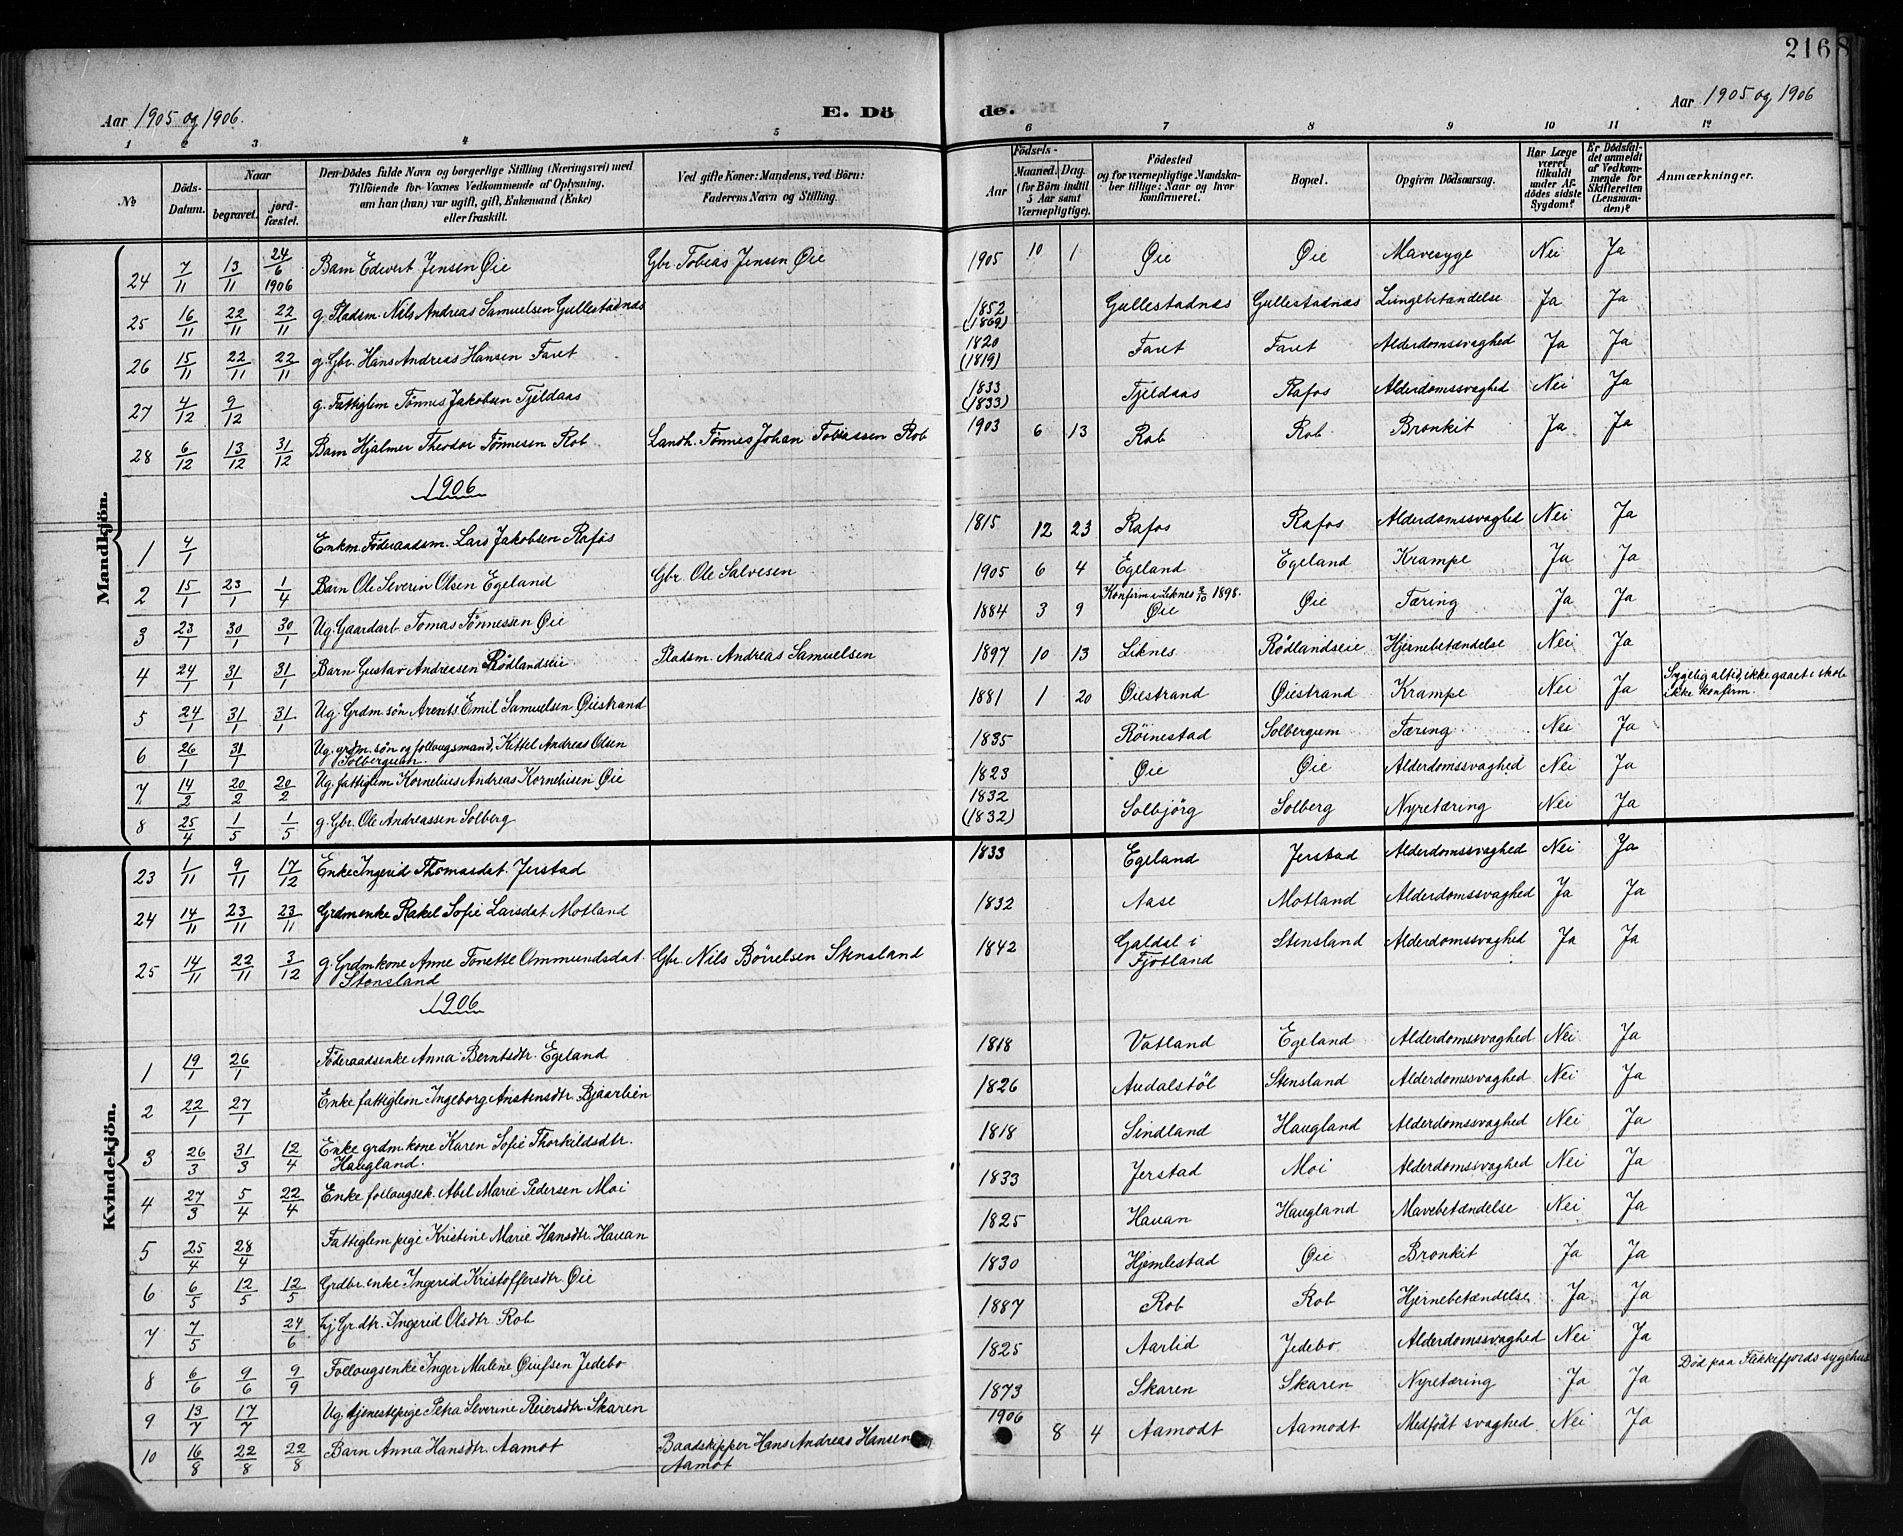 216
8
Aar 1905 og 1906.
E. Dö
de.
Aar 1905 og 1906
1 2 3 4 5 6 7 8 9 10 11 12
№
Döds-Datum.
Naar
begravet.
jord-fæstet.
Den Dödes fulde Navn og borgerlige Stilling (Næringsvei) med Tilföiende for Voxnes Vedkommende af Oplysning, om han (hun) var ugift, gift, Enkemand (Enke) eller fraskilt.
Ved gifte Koner: Mandens, ved Börn: Faderens Navn og Stilling.
Födsels-
Aar
Maaned. Dag.
(for Börn indtil 5 Aar samt Værnepligtige).
Födested og for værnepligtige Mandskaber tillige: Naar og hvor konfirmeret.
Bopæl.
Opgiven Dödsaarsag.
Har Læge været tilkaldt under Afdödes sidste Sygdom?
Er Dödsfaldet anmeldt af Vedkommende for Skifteretten (Lensmanden)?
Anmærkninger.
Mandkjön.
24 7/11 13/11 24/6 1906 Barn Edevert Jensen Øie Gbr. Tobias Jensen Øie 1905 10 1 Øie Øie Mavesyge Nei Ja
25 16/11 22/11 22/11 g. Pladsm. Nils Andreas Samuelsen Gullestadnæs 1852 (1869) Gullestadnæs Gullestadnæs Lungebetændelse Ja Ja
26 15/11 22/11 22/11 g. Gbr. Hans Andreas Hansen Faret 1820 (1819) Faret Faret Alderdomssvaghed Ja Ja
27 4/12 9/12 g. Fattiglem Tönnes Jakobsen Tjeldaas 1833 (1833) Tjeldaas Rafos Alderdomssvaghed Nei Ja
28 6/12 13/12 31/12 Barn Hjalmer Theodor Tönnesen Rob Landh. Tönnes Johan Tobiassen Rob 1903 6 13 Rob Rob Bronkit Ja Ja
1906
1 4/1 Enkm. Föderaadsm. Lars Jakobsen Rafos 1815 12 23 Rafos Rafos Alderdomssvaghed Nei Ja
2 15/1 23/1 1/4 Barn Ole Severin Olsen Egeland Gbr. Ole Salvesen 1905 6 4 Egeland Egeland Krampe Ja Ja
3 23/1 30/1 30/1 Ug. Gaardarb. Tomas Tönnessen Øie 1884 3 9 Konfirm. i Liknes 2/10 1898. Øie Øie Tæring Ja Ja
4 24/1 31/1 31/1 Barn Gustav Andreasen Rödlandseie Pladsm. Andreas Samuelsen 1897 10 13 Liknes Rödlandseie Hjernebetændelse Nei Ja
5 24/1 31/1 31/1 Ug. Grdm. sön Arents Emil Samuelsen Øiestrand 1881 1 20 Øiestrand Øiestrand Krampe Nei Ja Sygelig altid, ikke gaaet i skole
ikke konfirm.
6 26/1 31/1 Ug. grdm. sön og follaugsmand, Kittel Andreas Olsen
Solbergum. 1835 Röinestad Solbergum Tæring Nei Ja
7 14/2 20/2 20/2 Ug. fattiglem Kornelius Andreas Korneliusen Øie 1823 Øie Øie Alderdomssvaghed Nei Ja
8 25/4 1/5 1/5 g. Gbr. Ole Andreassen Solberg 1832 (1832) Solbjörg Solberg Nyretæring Nei Ja
Kvindekjön.
23 1/11 9/11 17/12 Enke Ingerid Thomasdat. Jerstad 1833 Egeland Jerstad Alderdomssvaghed Nei Ja
24 14/11 23/11 23/11 Grdmenke Rakel Sofie Larsdat Motland 1832 Aase Motland Alderdomssvaghed Ja Ja
25 14/11 22/11 3/12 g. Grdmkone Anne Tonette Ommundsdat. Gbr. Nils Börrelsen Stensland 1842 Galdal i Stensland Alderdomssvaghed Ja Ja
Stensland Fjotland
1906
1 19/1 26/1 Föderaadsenke Anna Berntsdtr. Egeland 1818 Vatland Egeland Alderdomssvaghed Nei Ja
2 22/1 27/1 Enke fattiglem Ingeborg Anstensdtr. Bjaarlien 1826 Audalstöl Stensland Alderdomssvaghed Nei Ja
3 26/3 31/3 12/4 Enke grdmkone Karen Sofie Thorkildsdtr.
Haugland. 1818 Sindland Haugland Alderdomssvaghed Nei Ja
4 27/3 5/4 22/4 Enke follaugsek. Abel Marie Pedersen Moi 1833 Jerstad Moi Alderdomssvaghed Nei Ja
5 25/4 28/4 Fattiglem pige Kristine Marie Hansdtr. Hauan 1825 Hauan Haugland Mavebetændelse Nei Ja
6 6/5 12/5 12/5 Grdbr. enke Ingerid Kristoffersdtr. Øie 1830 Hjemlestad Øie Bronkit Ja Ja
7 7/5 24/6 Grdtr. Ingerid Olsdtr. Rob 1887 Rob Rob Hjernebetændelse Ja Ja
8 6/6 9/6 9/9 Follaugsenke Inger Malene Øiufsen Jedebo 1825 Aarlid Jedebo Alderdomssvaghed Nei Ja
9 13/7 17/7 Ug. tjenestepige Petra Severine Reiersdtr. Skaren 1873 Skaren Skaren Nyretæring Ja Ja Död paa Flekkefjords sygehus
10 16/8 22/8 22/8 Barn Anna Hansdtr. Aamot Baadskipper Hans Andreas Hansen 1906 8 4 Aamodt Aamodt Medfödt svaghed Nei Ja
Aamot